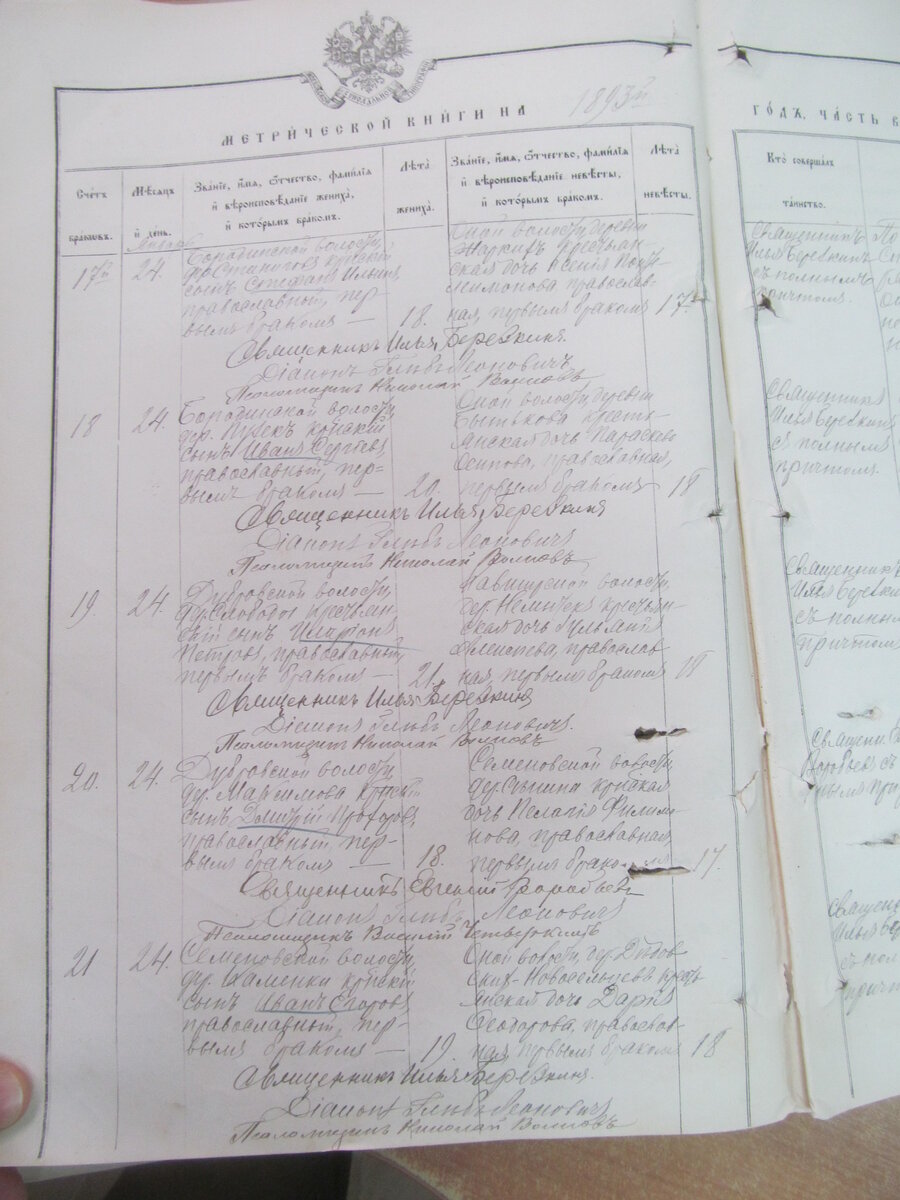 МЕТРИЧЕСКОЙ КНИГИ НА 1893й
ГОДЪ, ЧАСТЬ В
Счетъ браковъ.
Мѣсяцъ и день.
Званіе, имя, отчество, фамилія
и вѣроисповѣданіе жениха,
и которымъ бракомъ.
Лѣта жениха.
Званіе, имя, отчество, фамилія
и вѣроисповѣданіе невѣсты,
и которымъ бракомъ.
Лѣта невѣсты.
Кто совершалъ таинство.
Январь
17й
24.
Бородинской волости,
сынъ Стефанъ Ильинъ,
православный, пер-
вымъ бракомъ —
18.
волости, деревни
кресть-
ская дочь Ксенія
православ-
ная, первымъ бракомъ
17.
Священникъ
Илья Березкинъ
съ полнымъ
причтомъ.
Священникъ Илья Березкинъ
Діаконъ Глѣбъ Леоновичъ
Псаломщикъ Николай Волковъ
18
24.
Бородинской волости,
дер.
сынъ Иванъ Сергѣевъ,
православный, пер-
вымъ бракомъ —
20.
волости, деревни
Бытькова кресть-
янская дочь Параскева
Осипова, православная,
первымъ бракомъ
18
Священникъ
Илья Березкинъ
съ полнымъ
причтомъ.
Священникъ Илья Березкинъ
Діаконъ Глѣбъ Леоновичъ
Псаломщикъ Николай Волковъ
19
24.
Дубровской волости,
дер. Слободы крестьян-
сынъ
Петровъ, православный,
первымъ бракомъ —
21.
волости,
дер. крестьян-
ская дочь
православ
ная, первымъ бракомъ
18
Священникъ
Илья Березкинъ
съ полнымъ
причтомъ
Священникъ Илья Березкинъ
Діаконъ Глѣбъ Леоновичъ.
Псаломщикъ Николай Волковъ
20.
24.
Дубровской волости,
дер. Максимова
сынъ Дмитрій Прохоровъ,
православный, пер-
вымъ бракомъ —
18.
Семеновской волости,
дер.
дочь Пелагія Филимо-
нова, православная,
первымъ бракомъ
17.
Воробьевъ съ
Священникъ Евгеній Воробьевъ
Діаконъ Глѣбъ Леоновичъ
Псаломщикъ Василій Четвериковъ
21
24.
Семеновской волости,
дер. Каменки
сынъ Иванъ Егоровъ,
православный, пер-
вымъ бракомъ —
19.
волости, дер.
Новосельцевъ
янская дочь Дарія
Ѳеодорова, православ-
ная, первымъ бракомъ
18
Илья
съ пол
причто
Священникъ Илья Березкинъ.
Діаконъ Глѣбъ Леоновичъ
Псаломщикъ Николай Волковъ